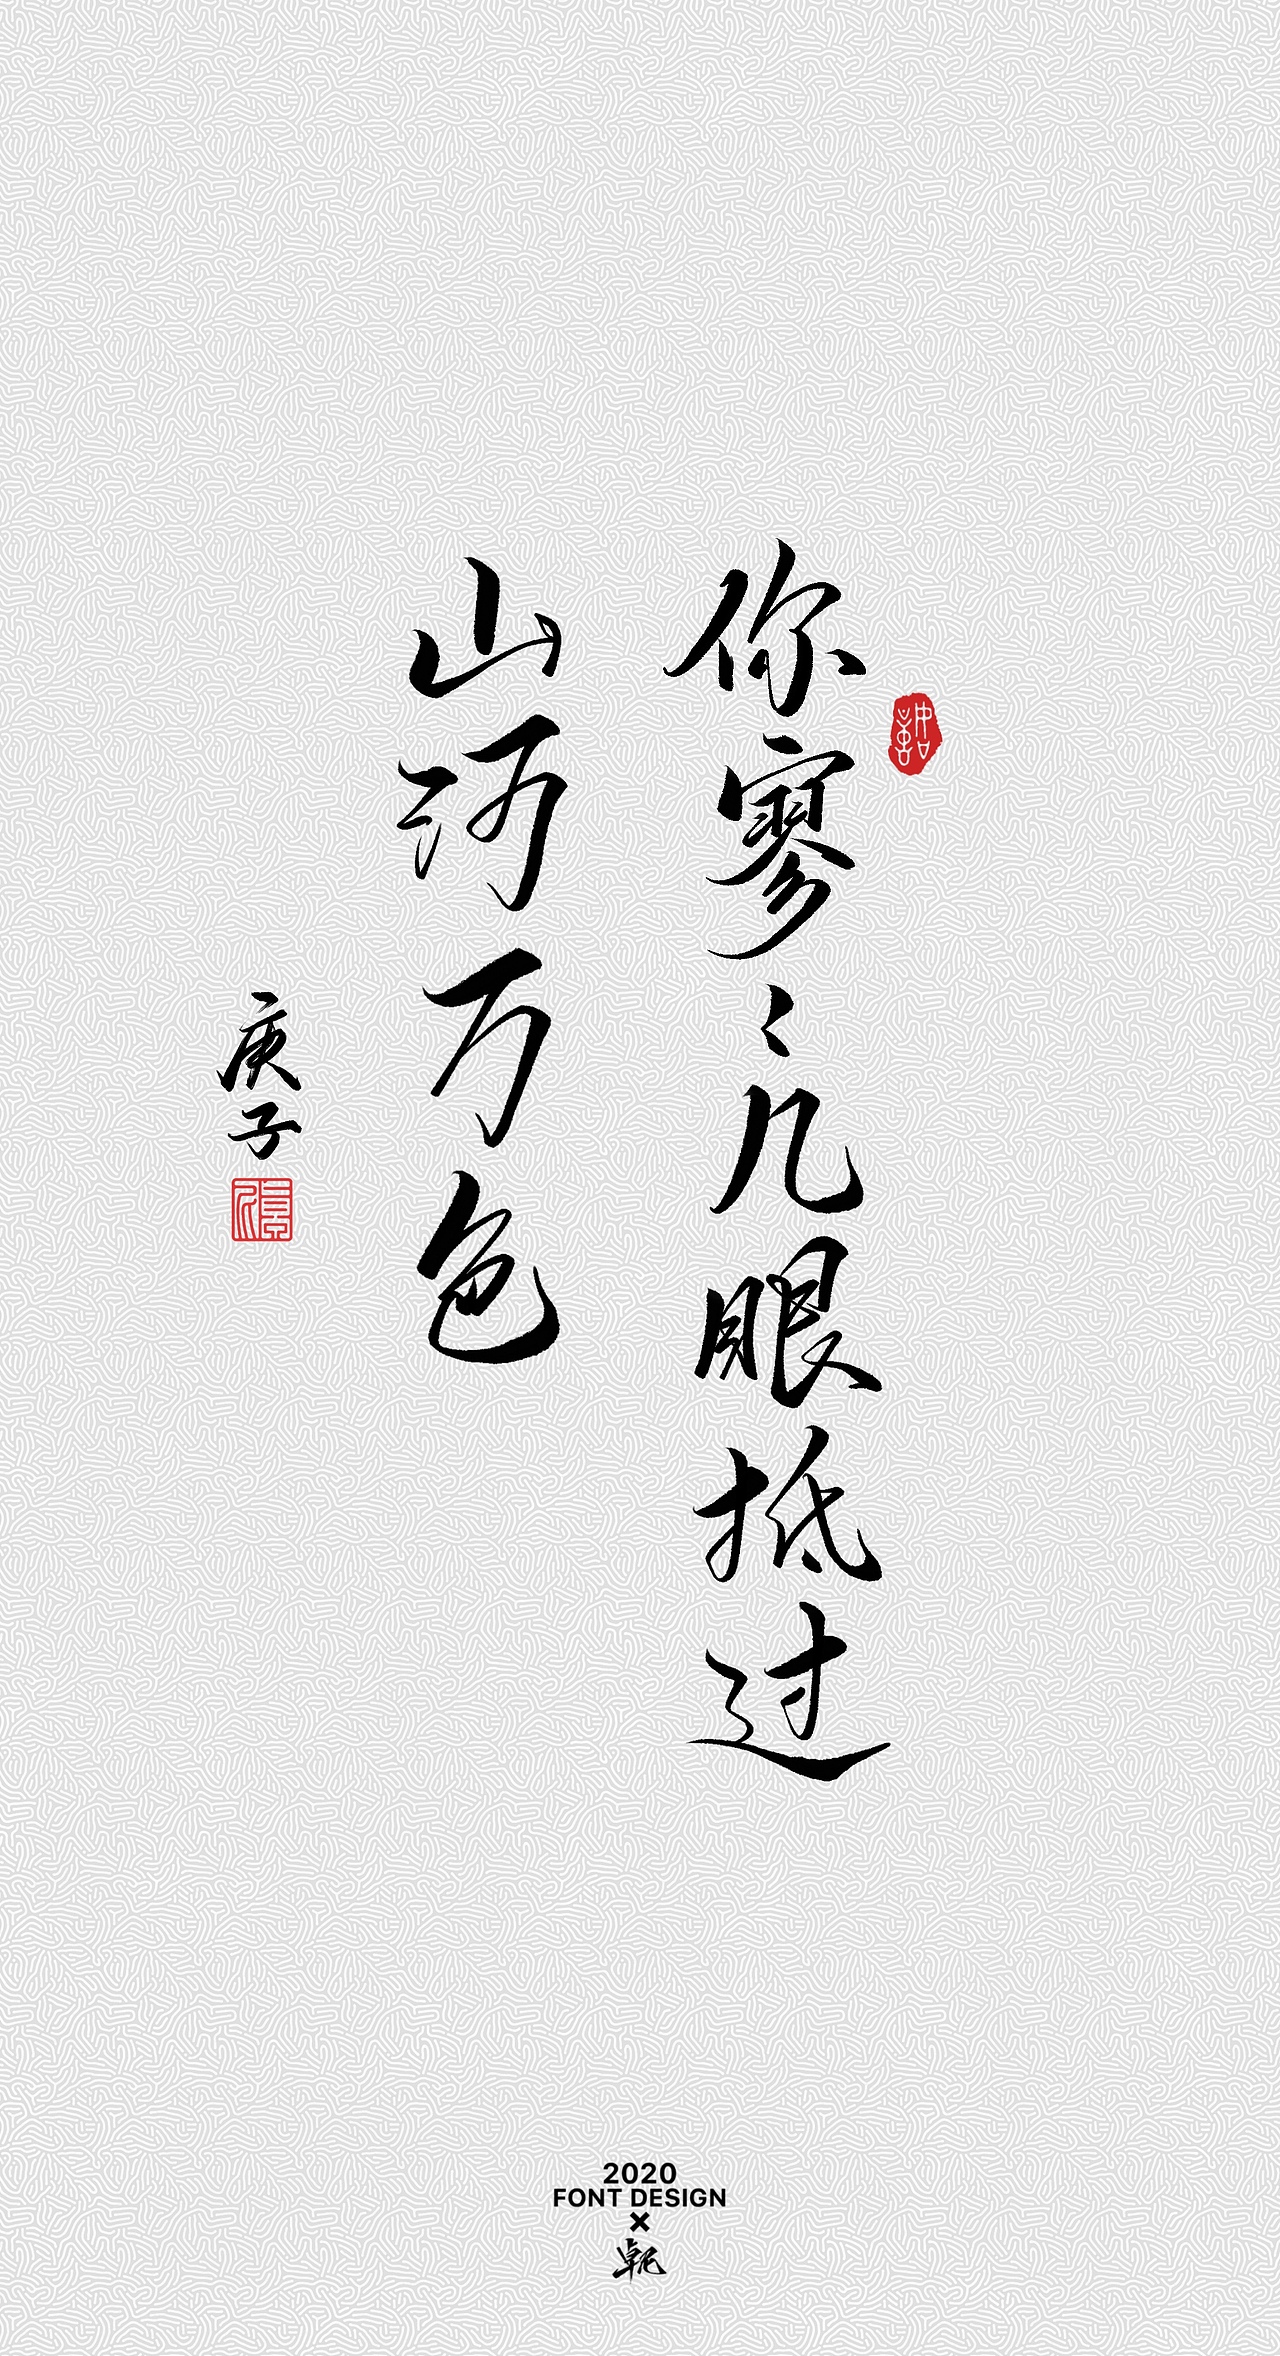 你寥〻几眼抵过
山河万色
庚子
2020
FONT DESIGN
×
乾